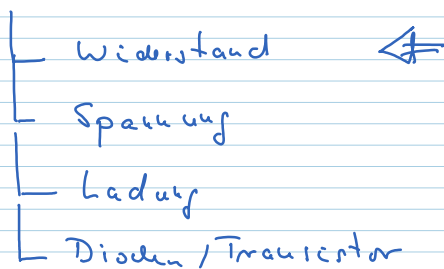 Widerstand
Spannung
Ladung
Dioden/Transistor